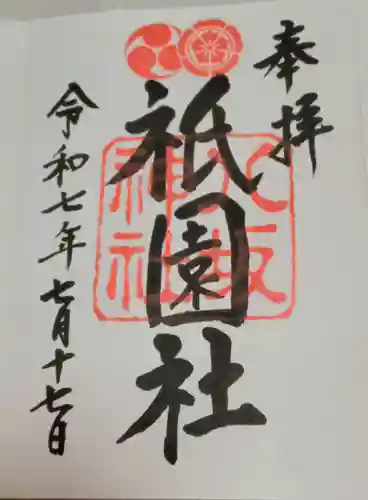 奉拝
八坂
神社
祇園社
令和七年七月十七日